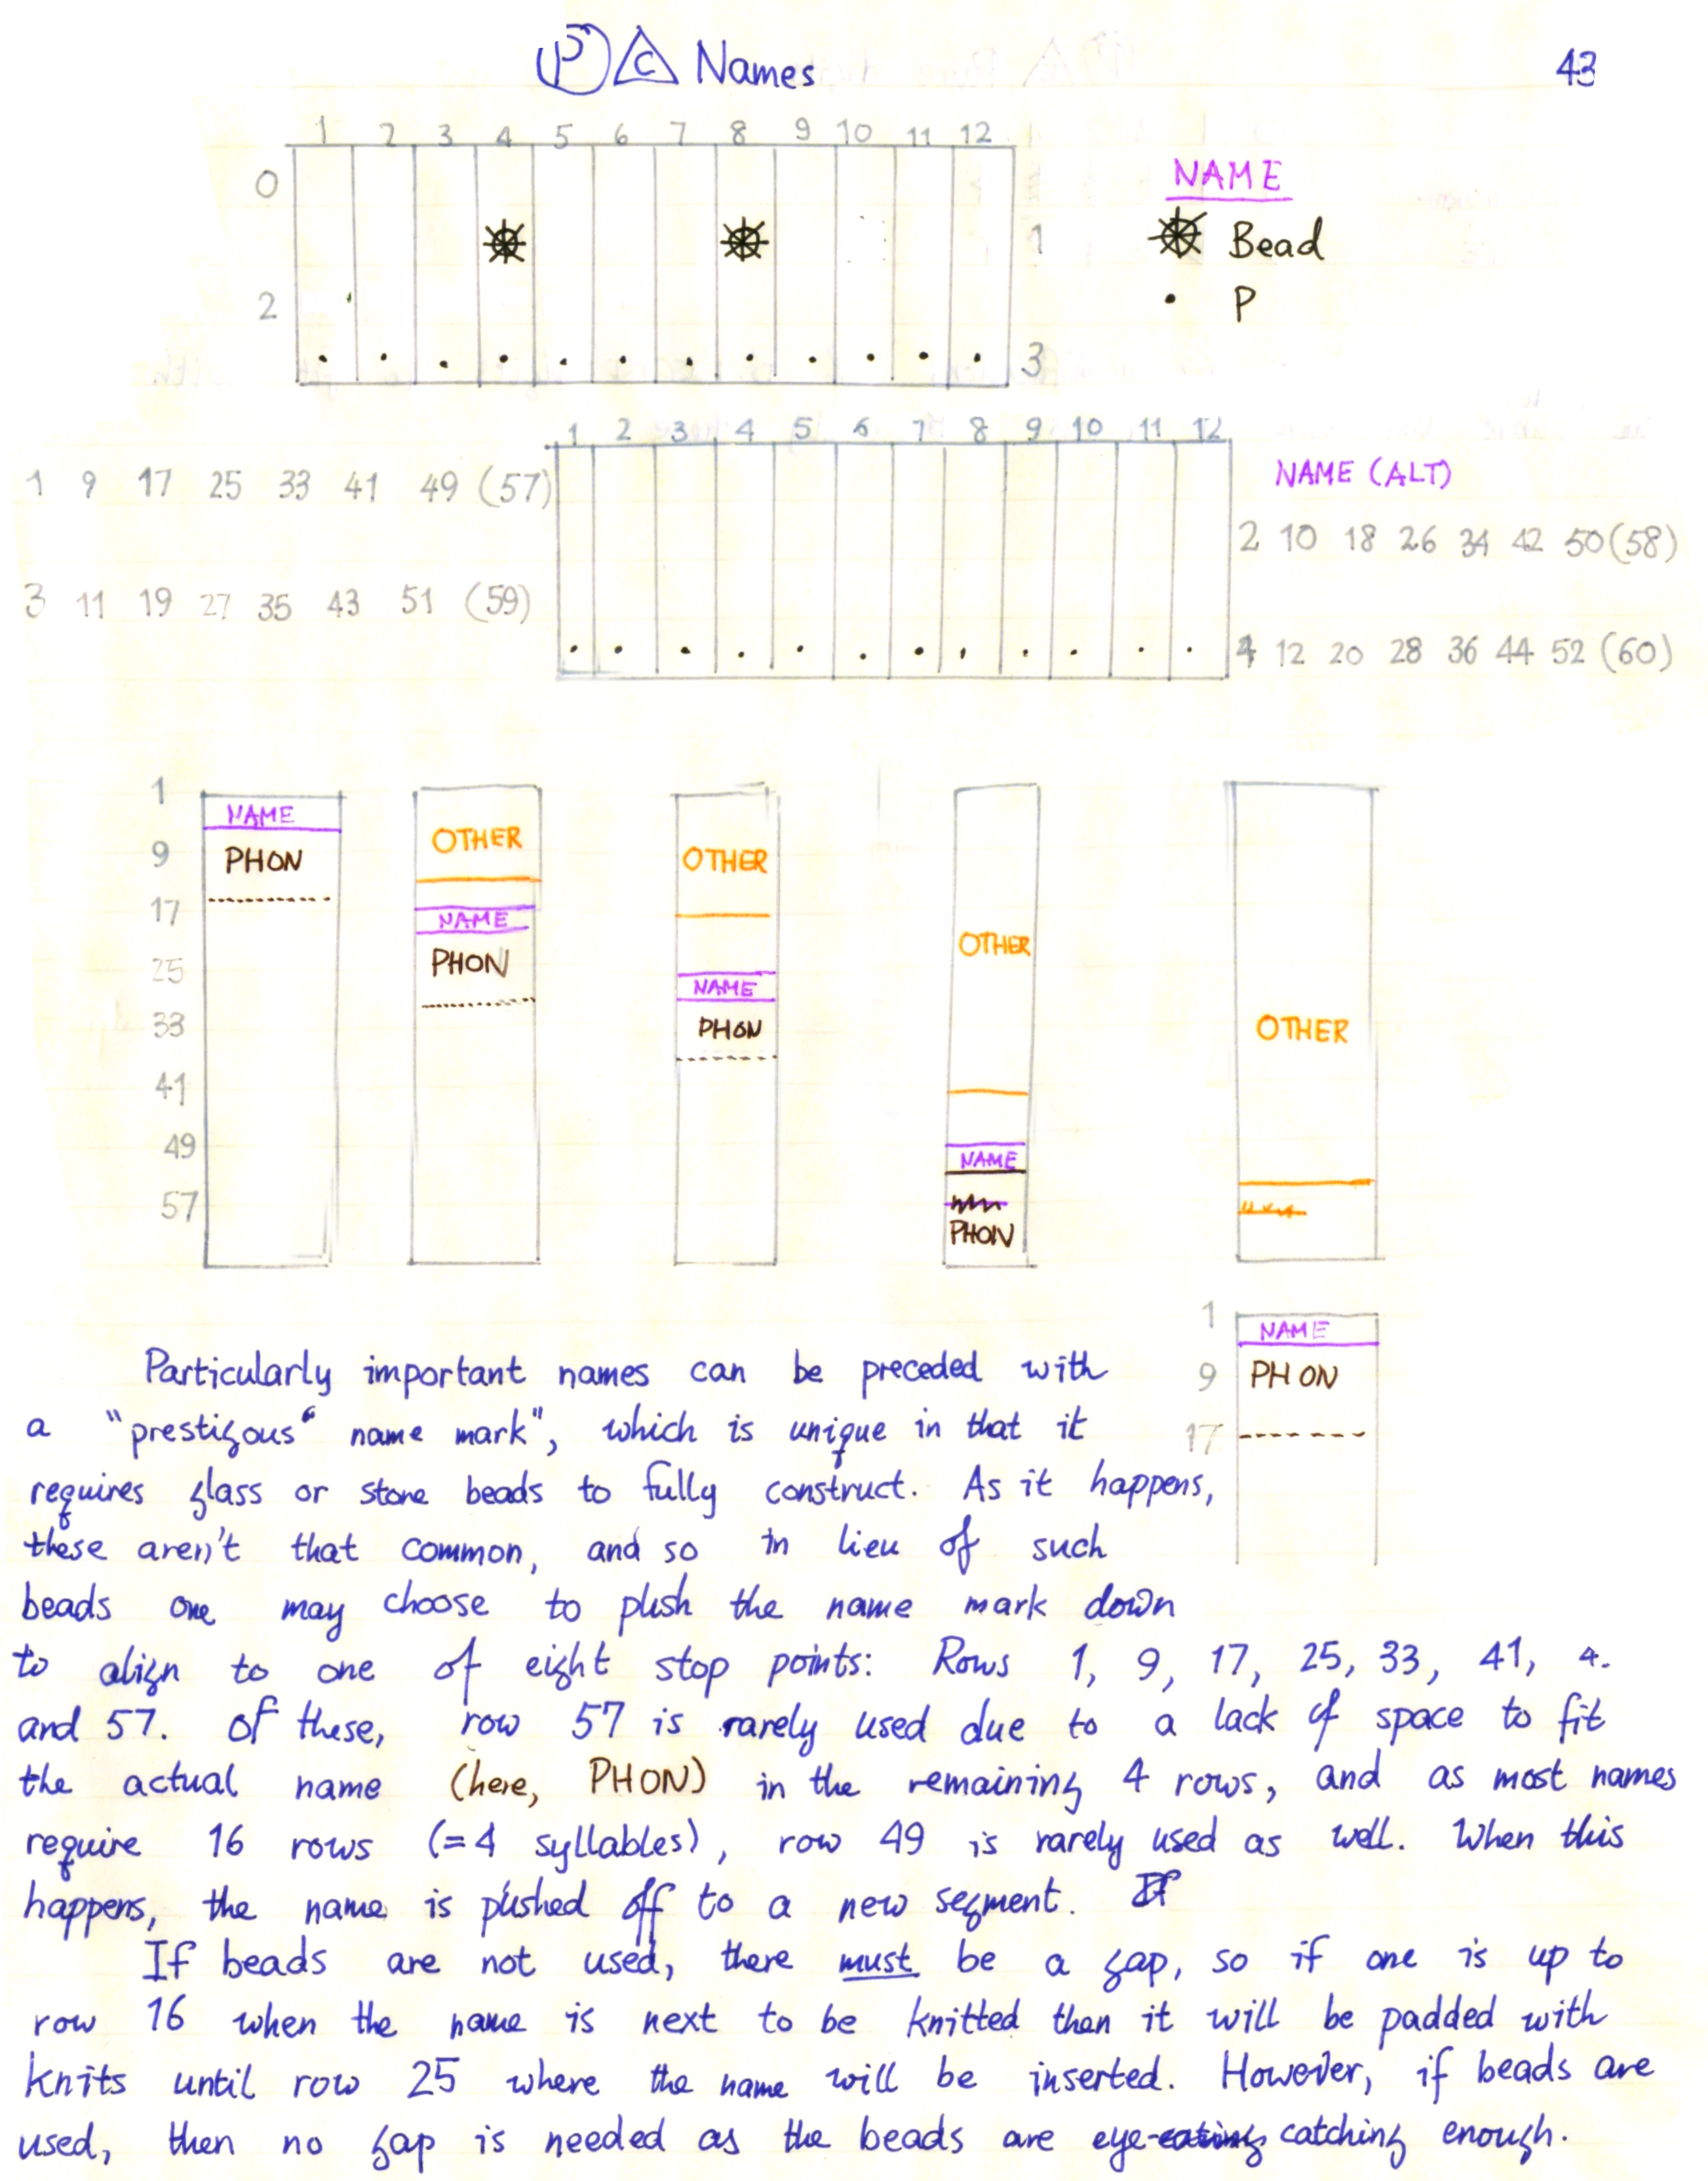 P C Names 43
1 2 3 4 5 6 7 8 9 10 11 12
0 NAME
1 Bead
2 P
3
1 2 3 4 5 6 7 8 9 10 11 12
1 9 17 25 33 41 49 (57) NAME (ALT)
2 10 18 26 34 42 50 (58)
3 11 19 27 35 43 51 (59)
4 12 20 28 36 44 52 (60)
1
9
17
25
33
41
49
57
NAME
PHON
OTHER
NAME
PHON
OTHER
NAME
PHON
OTHER
NAME
PHON
OTHER
1
9
17
NAME
PHON
Particularly important names can be preceded with
a "prestigous" name mark", which is unique in that it
requires glass or stone beads to fully construct. As it happens,
these aren't that common, and so in lieu of such
beads one may choose to push the name mark down
to align to one of eight stop points: Rows 1, 9, 17, 25, 33, 41, 4.
and 57. Of these, row 57 is rarely used due to a lack of space to fit
the actual name (here, PHON) in the remaining 4 rows, and as most names
require 16 rows (=4 syllables), row 49 is rarely used as well. When this
happens, the name is pushed off to a new segment.
If beads are not used, there must be a gap, so if one is up to
row 16 when the name is next to be knitted then it will be padded with
knits until row 25 where the name will be inserted. However, if beads are
used, then no gap is needed as the beads are eye-catching enough.